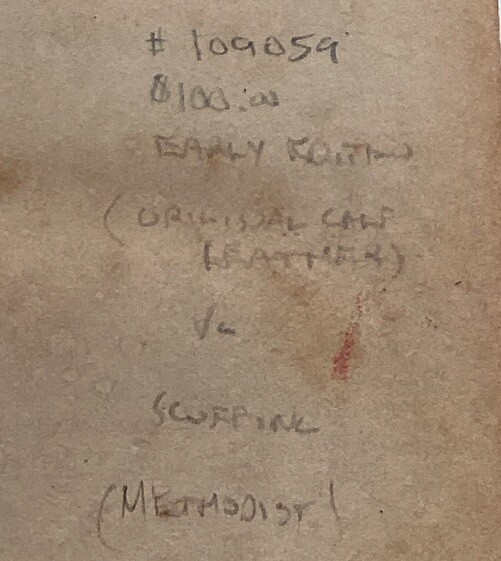 # 109059
$100.00
EARLY EDITION
(ORIGINAL CALF
LEATHER)
SCUFFING
(METHODIST)